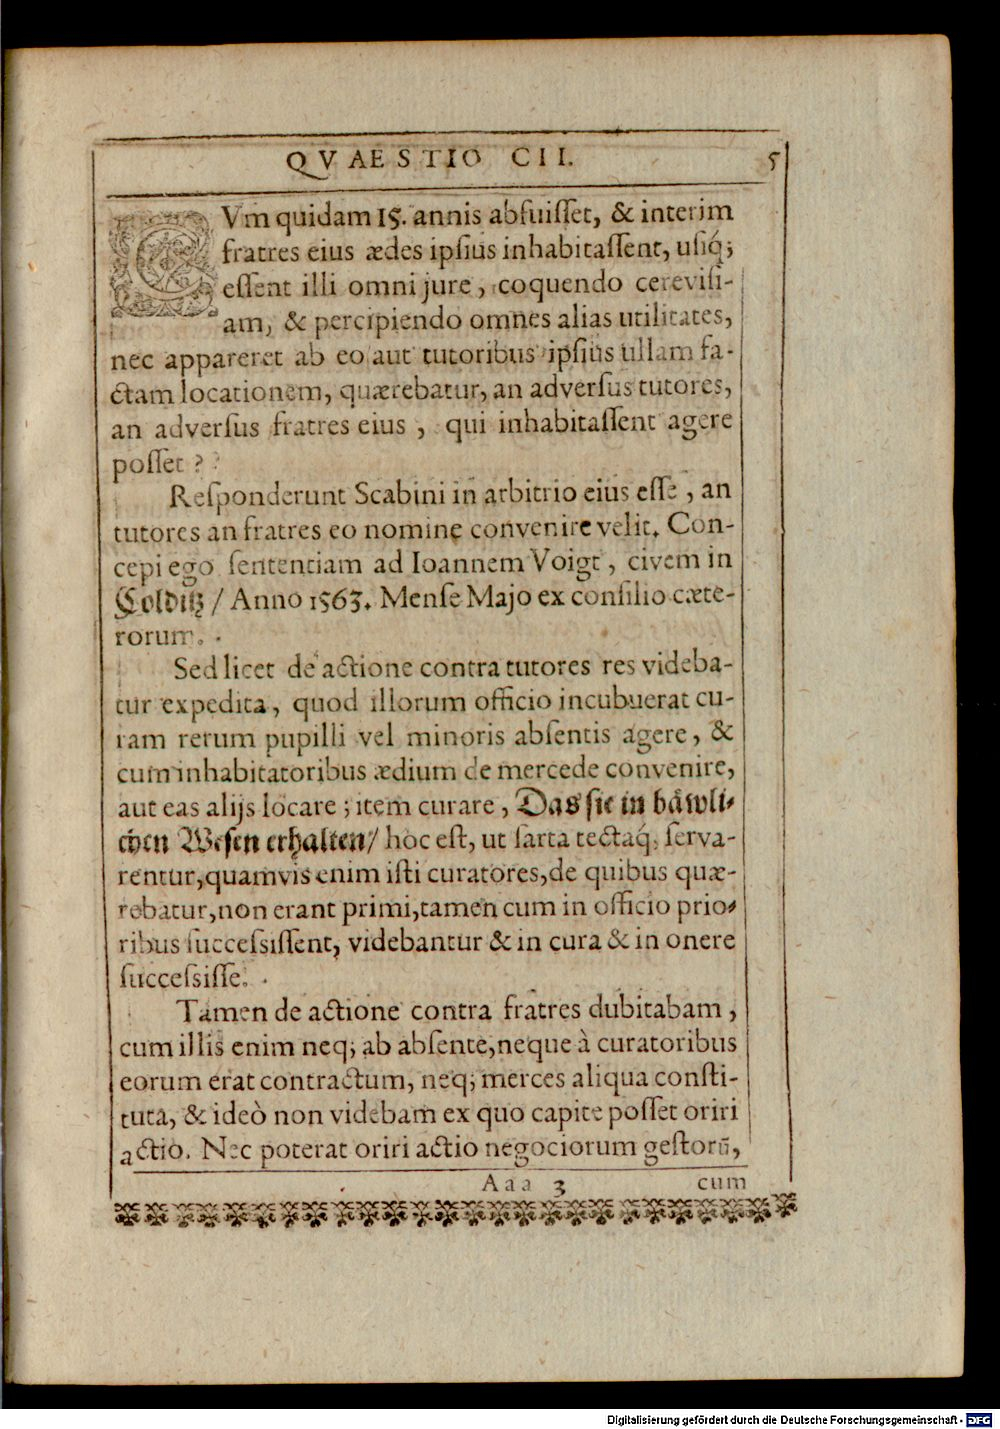 QVAESTIO CII. 5
CVm quidam 15. annis abfuiſſet, & interim
fratres eius ædes ipſius inhabitaſſent, uſiq́;
eſſent illi omni jure, coquendo cereviſi-
am, & percipiendo omnes alias utilitates,
nec appareret ab eo aut tutoribus ipſius ullam fa-
ctam locationem, quærebatur, an adverſus tutores,
an adverſus fratres eius, qui inhabitaſſent agere
poſſet?
Reſponderunt Scabini in arbitrio eius eſſe, an
tutores an fratres eo nomine convenire velit. Con-
cepi ego ſententiam ad Ioannem Voigt, civem in
Colditz / Anno 1563. Menſe Majo ex conſilio cæte-
rorum.
Sed licet de actione contra tutores res videba-
tur expedita, quod illorum officio incubuerat cu-
ram rerum pupilli vel minoris abſentis agere, &
cum inhabitatoribus ædium de mercede convenire,
aut eas alijs locare; item curare, Das ſie in bäwli-
chen Weſen erhalten/ hoc eſt, ut ſarta tectaq́; ſerva-
rentur, quamvis enim iſti curatores, de quibus quæ-
rebatur, non erant primi, tamen cum in officio prio-
ribus ſucceſsiſſent, videbantur & in cura & in onere
ſucceſsiſſe.
Tamen de actione contra fratres dubitabam,
cum illis enim neq; ab abſente, neque à curatoribus
eorum erat contractum, neq; merces aliqua conſti-
tuta, & ideò non videbam ex quo capite poſſet oriri
actio. Nec poterat oriri actio negociorum geſtorū,
Aaa 3 cum
Digitalisierung gefördert durch die Deutsche Forschungsgemeinschaft - DFG